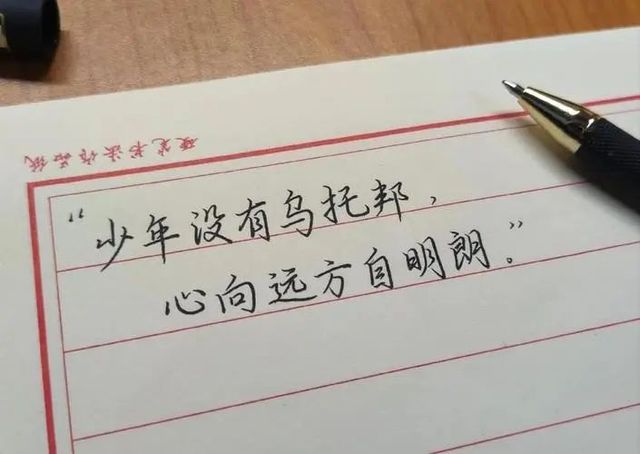 硬笔书法作品纸
“少年没有乌托邦，
心向远方自明朗。”